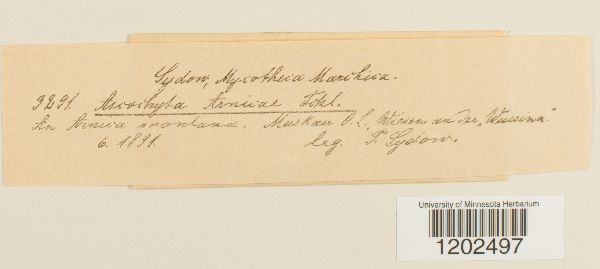 Sydow, Mycotheca Marchica.
3291. Ascochyta Arnicae Fckl.
An Arnica montana. Muskau O.L. Wiesen an der „Wussina“
6. 1891. leg. P. Sydow.
University of Minnesota Herbarium
1202497